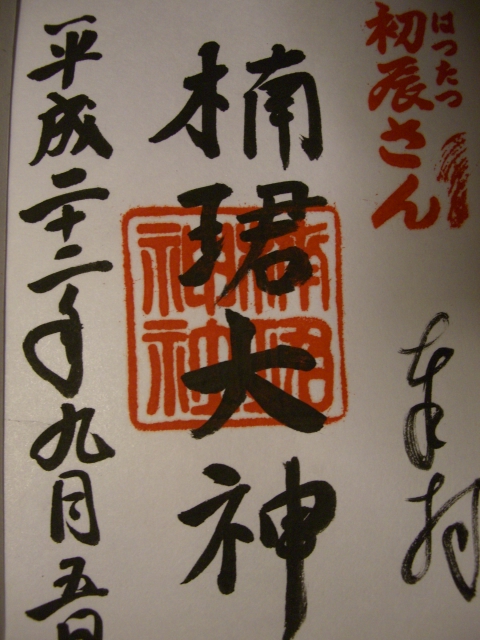 はつたつ
初辰さん
奉拝
楠珺大神
楠珺神社
平成二十二年九月五日